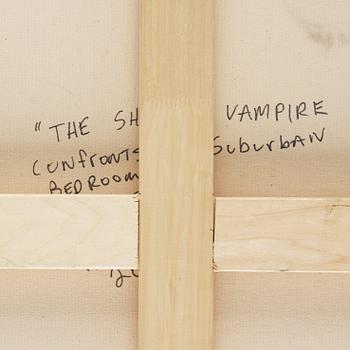 "THE SH VAMPIRE
CONFRONTS SUBURBAN
BEDROOM